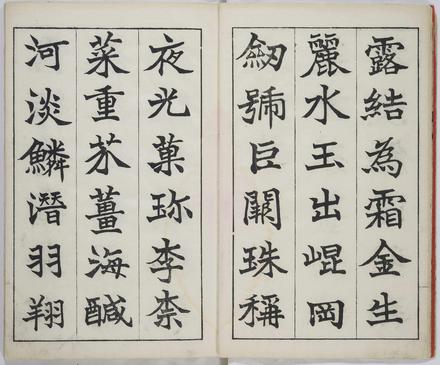 露結為霜金生
麗水玉出崐岡
劒號巨闕珠稱
夜光菓珎李柰
菜重芥薑海醎
河淡鱗潛羽翔